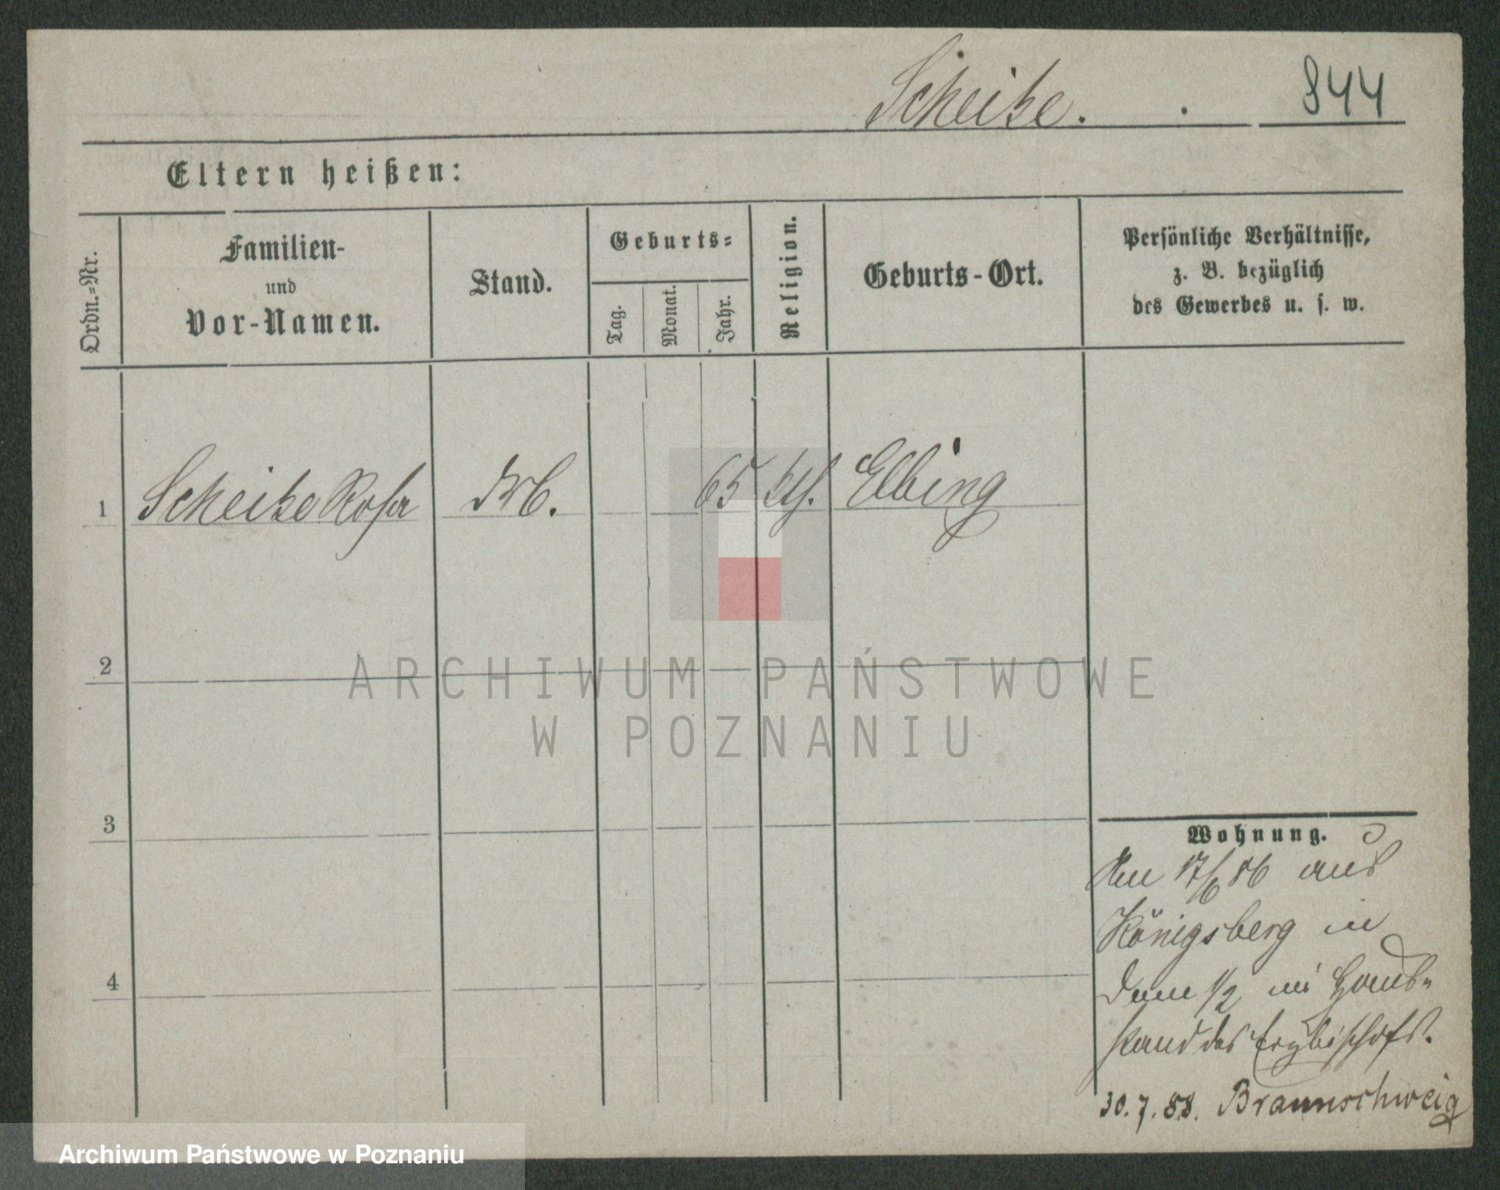 Scheibe. 844
Eltern heißen:
Ordn.-Nr.
Familien-
und
Vor-Namen.
Stand.
Geburts-
Tag.
Monat.
Jahr.
Religion.
Geburts-Ort.
Persönliche Verhältnisse,
z. B. bezüglich
des Gewerbes u. s. w.
1 Scheibe Rosa 65 Elbing
2
3
4
Wohnung.
17/6 86 aus
Königsberg in
Dom 1/2 im Haus-
stand des Erzbischofs.
30.7.88. Braunschweig
ARCHIWUM PAŃSTWOWE
W POZNANIU
Archiwum Państwowe w Poznaniu